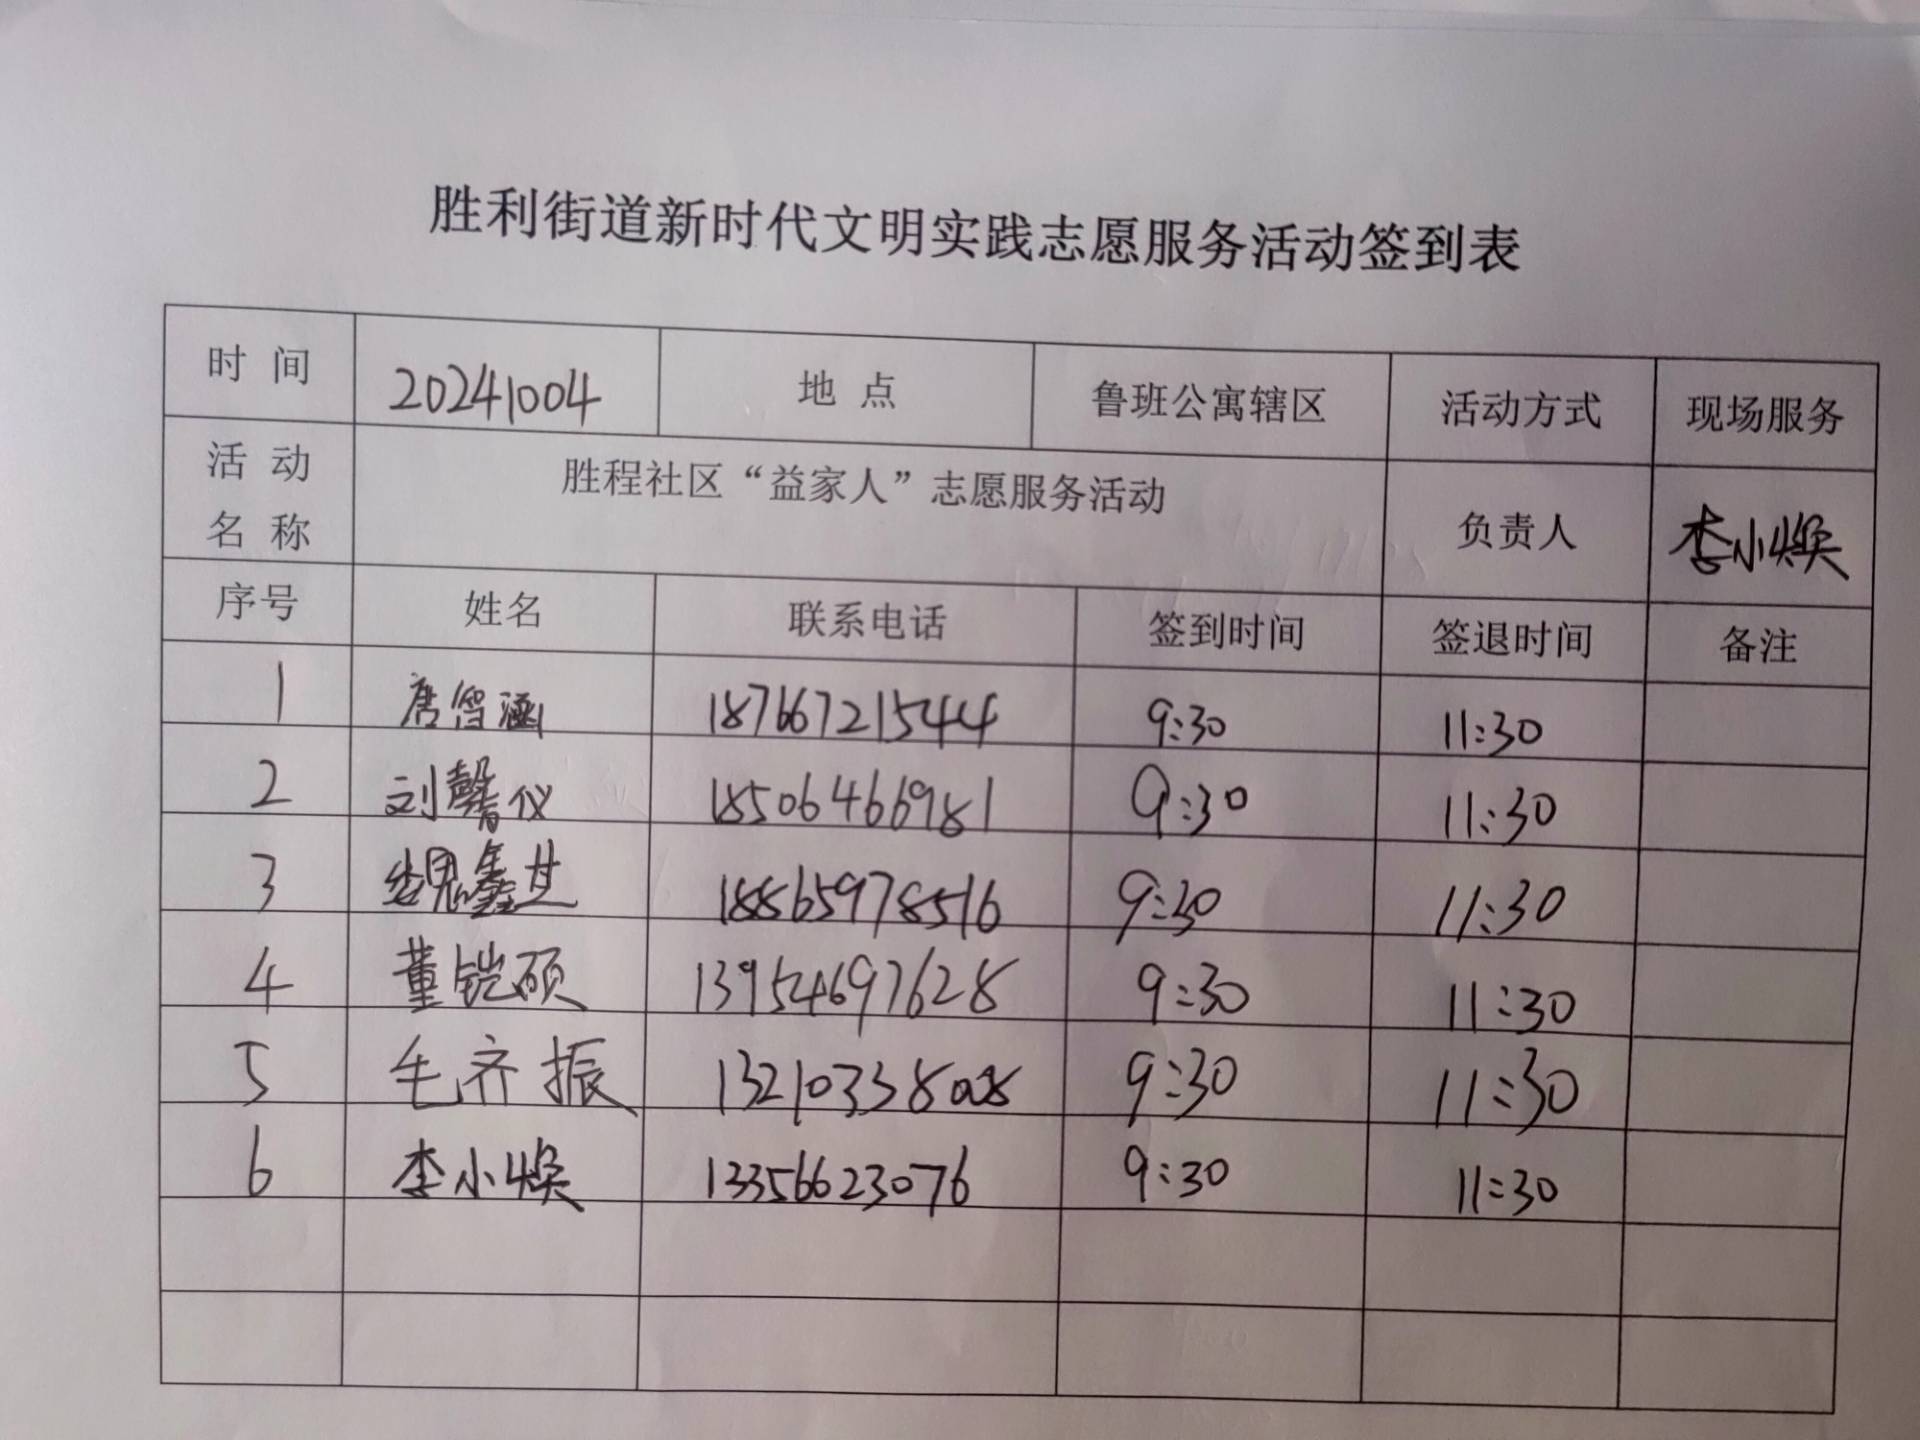 胜利街道新时代文明实践志愿服务活动签到表
时 间 20241004 地 点 鲁班公寓辖区 活动方式 现场服务
活 动
名 称 胜程社区“益家人”志愿服务活动 负责人 李小焕
序号 姓名 联系电话 签到时间 签退时间 备注
1 唐智涵 18766721544 9:30 11:30
2 刘馨仪 18506466981 9:30 11:30
3 魏鑫芷 18865978516 9:30 11:30
4 董铠硕 13954697628 9:30 11:30
5 毛齐振 13210338008 9:30 11:30
6 李小焕 13356623076 9:30 11:30